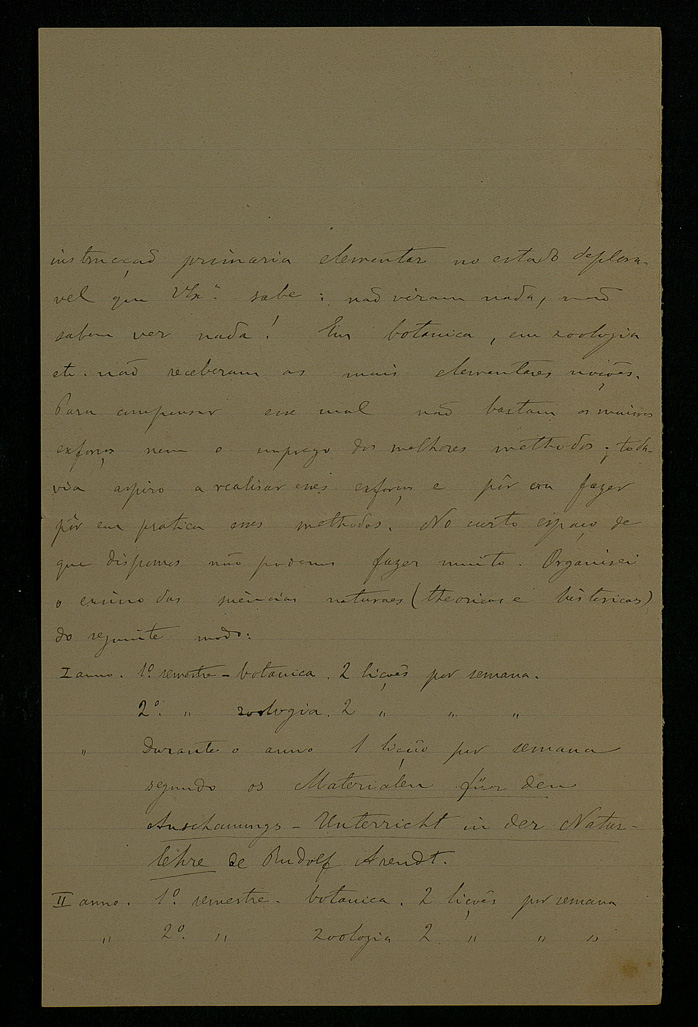 instrucçaõ primaria elementar no estado deplora-
vel que V. Ex.ª sabe: naõ viram nada, naõ
sabem ver nada! Em botanica, em zoologia
etc. naõ receberam as mais elementares noições.
Para compensar esse mal naõ bastam os maiores
exforços nem o emprego dos melhores methodos; toda-
via aspiro a realisar esses exforços e pôr em fazer
pôr em pratica esses methodos. No curto espaço de
que dispomos não podemos fazer muito. Organisei
o ensino das sciencias naturaes (theoricas e historicas)
do seguinte modo:
I anno. 1º semestre - botanica. 2 lições por semana.
2º. " zoologia. 2 " " "
" Durante o anno 1 lição por semana
segundo os Materialen für den
Anschauungs-Unterricht in der Natur-
lehre de Rudolf Arendt.
II anno. 1º. semestre. botanica. 2 lições por semana
" 2º. " zoologia 2 " " "